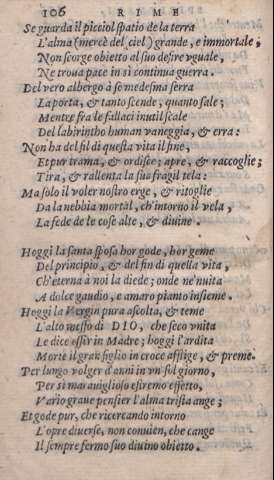 106 RIME
Se guarda il picciol spatio de la terra
L'alma (mercè del ciel) grande, e immortale,
Non scorge obietto al suo desire vguale,
Ne troua pace in sì continua guerra.
Del vero albergo à se medesma serra
La porta, & tanto scende, quanto sale;
Mentre fra le fallaci inutil scale
Del labirintho human vaneggia, & erra:
Non ha del fil di questa vita il fine,
Et pur trama, & ordisce; apre, & raccoglie;
Tira, & rallenta la sua fragil tela:
Ma solo il voler nostro erge, & ritoglie
Da la nebbia mortal, ch'intorno il vela,
La fede de le cose alte, & diuine.
Hoggi la santa sposa hor gode, hor geme
Del principio, & del fin di quella vita,
Ch'eterna à noi la diede; onde ne'nuita
A dolce gaudio, e amaro pianto insieme.
Hoggi la Vergin pura ascolta, & teme
L'alto messo di DIO, che seco vnita
Le dice esser in Madre; hoggi l'ardita
Morte il gran figlio in croce afflige, & preme.
Per lungo volger d'anni in vn sol giorno,
Per sì marauiglioso estremo effetto,
Vario graue pensier l'alma trista ange;
Et gode pur, che ricercando intorno
L'opre diuerse, non conuien, che cange
Il sempre fermo suo diuino obietto.